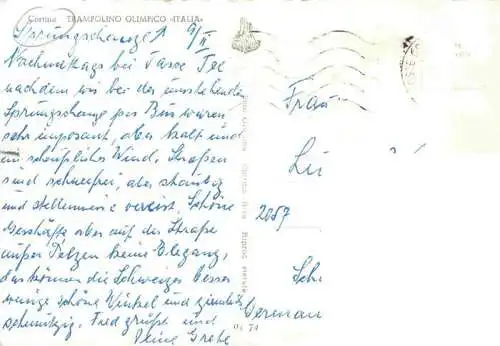 Cortina TRAMPOLINO OLIMPICO «ITALIA»
Sprungschanze ↑ 9/II
Nachmittags bei Tasse Tee
nachdem wir bei der umstehenden
Sprungschanze per Bus waren
sehr imposant, aber kalt und
ein scheußlicher Wind. Straßen
sind schneefrei, aber staubig
und stellenweise vereist. Schöne
Geschäfte aber auf der Straße
außer Pelzen keine Eleganz,
das können die Schweizer besser
wenige schöne Winkel und ziemlich
schmutzig. Fred grüßt und
Deine Grete
Frau
2057
German
74